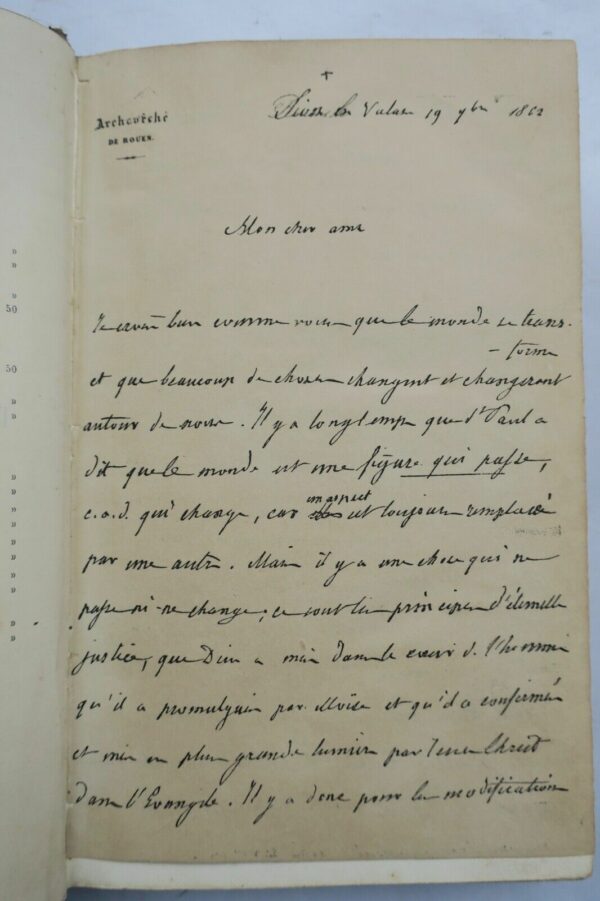 +
Archevêché
DE ROUEN.
19 9bre 1862
Mon cher ami
Je crois bien comme vous que le monde se trans-
-forme
et que beaucoup de choses changent et changeront
autour de nous. Il y a longtemps que St Paul a
dit que le monde est une figure qui passe,
c.a.d. qui change, car un aspect est toujours remplacé
par une autre. Mais il y a une chose qui ne
passe ni ne change; ce sont les principes d'éternelle
justice, que Dieu a mis dans le cœur de l'homme
qu'il a promulgués par Moïse et qu'il a confirmés
et mis en plus grande lumière par Jesus Christ
dans l'Evangile. Il y a donc pour la modification
"
"
"
50
50
"
"
"
"
"
"
"
"
"
"
"